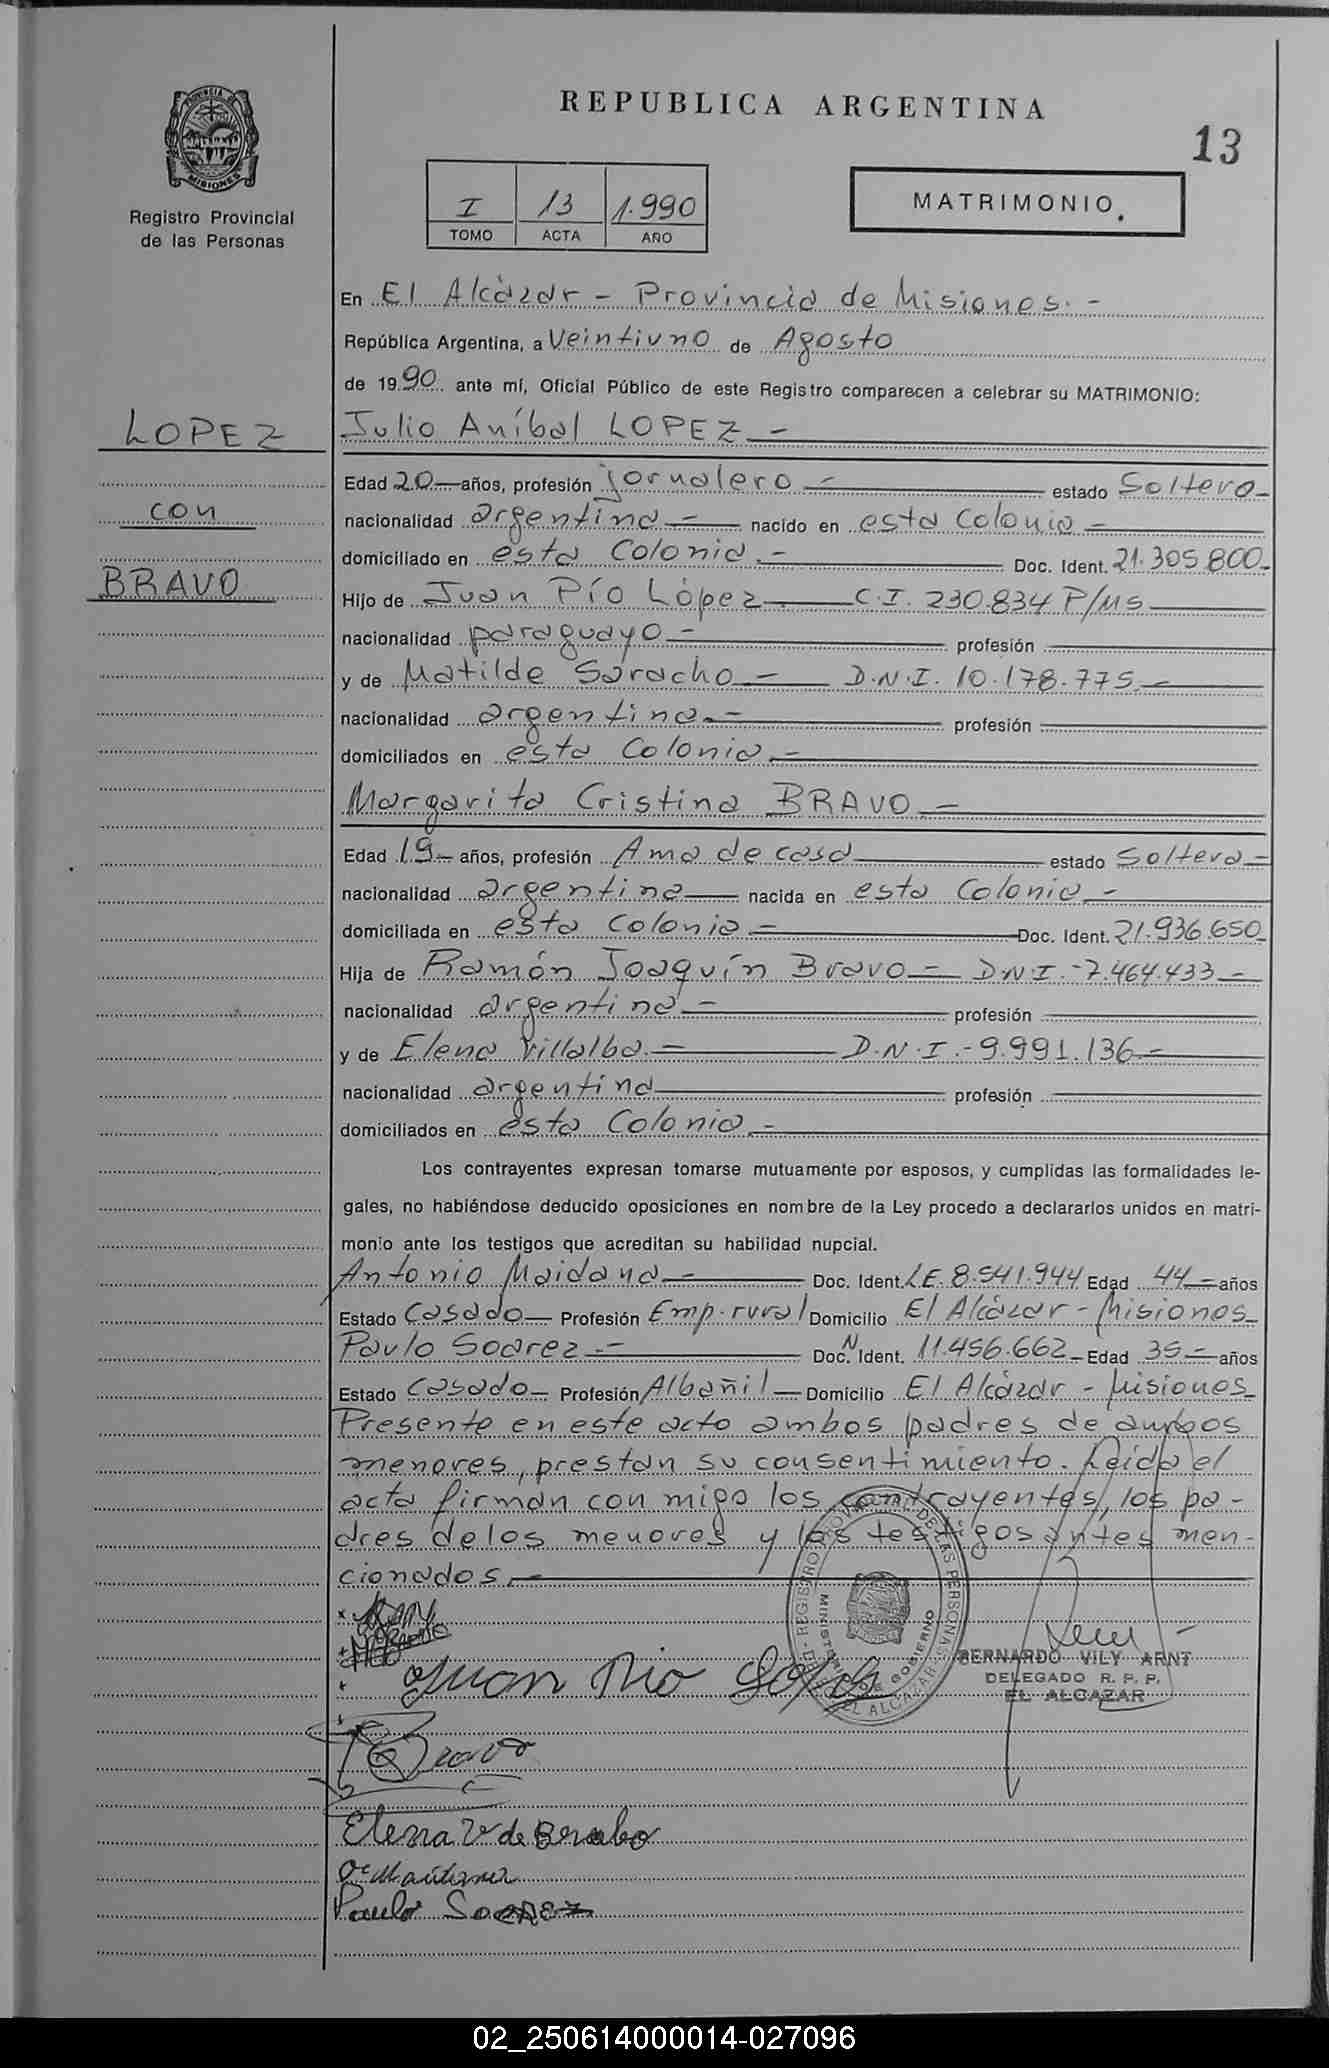 REPUBLICA ARGENTINA
13
PROVINCIA DE
MISIONES
Registro Provincial
de las Personas
I 13 1.990
TOMO ACTA AÑO
MATRIMONIO.
En El Alcàzar - Provincia de Misiones. -
República Argentina, a Veintiuno de Agosto
de 1990 ante mí, Oficial Público de este Registro comparecen a celebrar su MATRIMONIO:
LOPEZ
con
BRAVO
Julio Aníbal LOPEZ -
Edad 20 años, profesión jornalero - estado Soltero -
nacionalidad argentina - nacido en esta Colonia -
domiciliado en esta Colonia. - Doc. Ident. 21.305.800 -
Hijo de Juan Pío Lòpez C.I. 230.834 P/Ms
nacionalidad paraguayo - profesión
y de Matilde Saracho - D.N.I. 10.178.775. -
nacionalidad argentina. - profesión
domiciliados en esta Colonia. -
Margarita Cristina BRAVO -
Edad 19 - años, profesión Ama de casa estado Soltera -
nacionalidad argentina nacida en esta Colonia -
domiciliada en esta Colonia - Doc. Ident. 21.936.650
Hija de Ramón Joaquín Bravo - D.N.I. - 7.464.433 -
nacionalidad argentina - profesión
y de Elena Villalba. - D.N.I. - 9.991.136 -
nacionalidad argentina profesión
domiciliados en esta Colonia. -
Los contrayentes expresan tomarse mutuamente por esposos, y cumplidas las formalidades le-
gales, no habiéndose deducido oposiciones en nombre de la Ley procedo a declararlos unidos en matri-
monio ante los testigos que acreditan su habilidad nupcial.
Antonio Maidana - Doc. Ident. L.E. 8.541.944 Edad 44 - años
Estado Casado - Profesión Emp. rural Domicilio El Alcàzar - Misiones
Paulo Soarez. - Doc. N Ident. 11.456.662 - Edad 35 - años
Estado Casado - Profesión Albañil - Domicilio El Alcàzar - Misiones
Presente en este acto ambos padres de ambos
menores, prestan su consentimiento. Leida el
acta firman con migo los contrayentes, los pa-
dres de los menores y los testigos antes men-
cionados. -
REGISTRO PROVINCIAL DE LAS PERSONAS
MINISTERIO DE GOBIERNO
EL ALCAZAR
Juan Pio Lopez
BERNARDO VILY ARNT
DELEGADO R. P. P.
EL ALCAZAR
Bravo
Elena V de Brabo
Paulo Soarez
02_250614000014-027096